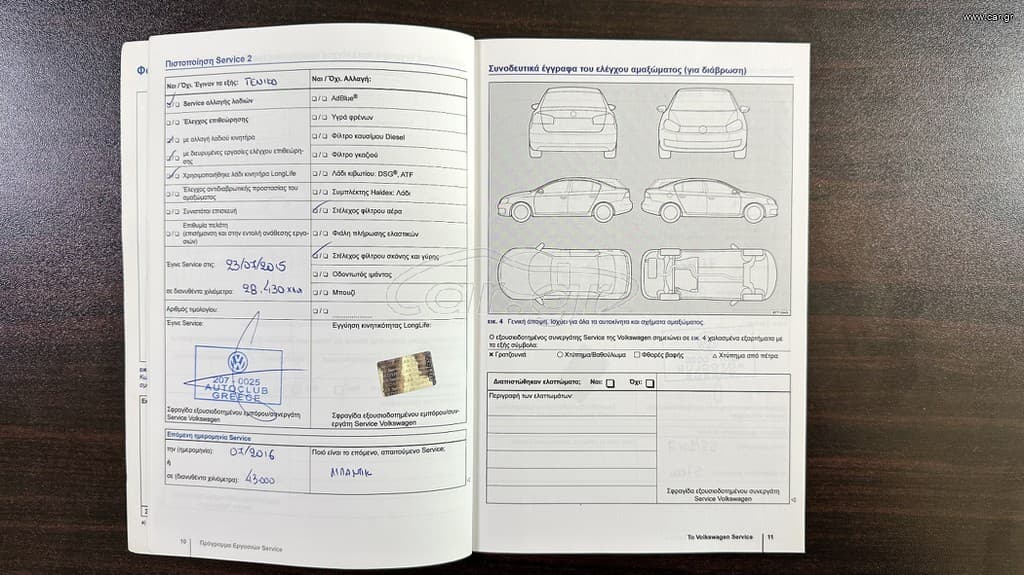 www.car.gr
Πιστοποίηση Service 2
Ναι / Όχι. Έγιναν τα εξής: ΓΕΝΙΚΟ
Service αλλαγής λαδιών
Έλεγχος επιθεώρησης
με αλλαγή λαδιού κινητήρα
με διευρυμένες εργασίες ελέγχου επιθεώρη-
σης
Χρησιμοποιήθηκε λάδι κινητήρα LongLife
Έλεγχος αντιδιαβρωτικής προστασίας του
αμαξώματος
Συνιστάται επισκευή
Επιθυμία πελάτη
(επισήμανση και στην εντολή ανάθεσης εργα-
σιών)
Έγινε Service στις: 23/07/2015
σε διανυθέντα χιλιόμετρα: 28.430 χλμ
Αριθμός τιμολογίου:
Έγινε Service:
207-0025
AUTOCLUB
GREECE
Σφραγίδα εξουσιοδοτημένου εμπόρου/συνεργάτη
Service Volkswagen
Ναι / Όχι. Αλλαγή:
AdBlue®
Υγρά φρένων
Φίλτρο καυσίμου Diesel
Φίλτρο γκαζιού
Λάδι κιβωτίου: DSG®, ATF
Συμπλέκτης Haldex: Λάδι
Στέλεχος φίλτρου αέρα
Φιάλη πλήρωσης ελαστικών
Στέλεχος φίλτρου σκόνης και γύρης
Οδοντωτός ιμάντας
Μπουζί
Εγγύηση κινητικότητας LongLife:
Σφραγίδα εξουσιοδοτημένου εμπόρου/συν-
εργάτη Service Volkswagen
Επόμενη ημερομηνία Service
την (ημερομηνία): 07/2016
ή
σε (διανυθέντα χιλιόμετρα): 43000
Ποιό είναι το επόμενο, απαιτούμενο Service:
ΜΠΑΜΠΚ
10 Πρόγραμμα Εργασιών Service
Συνοδευτικά έγγραφα του ελέγχου αμαξώματος (για διάβρωση)
car.gr
εικ. 4 Γενική άποψη. Ισχύει για όλα τα αυτοκίνητα και σχήματα αμαξώματος.
Ο εξουσιοδοτημένος συνεργάτης Service της Volkswagen σημειώνει σε εικ. 4 χαλασμένα εξαρτήματα με
τα εξής σύμβολα:
× Γρατζουνιά ○ Χτύπημα/Βαθούλωμα □ Φθορές βαφής △ Χτύπημα από πέτρα
Διαπιστώθηκαν ελαττώματα; Ναι: Όχι:
Περιγραφή των ελαττωμάτων:
Σφραγίδα εξουσιοδοτημένου συνεργάτη
Service Volkswagen
Το Volkswagen Service 11